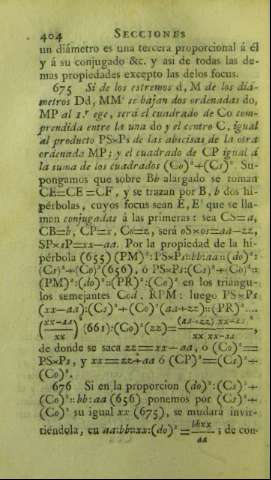 404 SECCIONES
un diámetro es una tercera proporcional á él
y á su conjugado &c. y asi de todas las de
mas propiedades excepto las delos focus.
675 Si de los estremos d, M de los diá-
metros Dd, MM' se bajan dos ordenadas do,
MP al 1.º ege, será el cuadrado de Co com-
prendida entre la una do y el centro C, igual
al producto PS×Ps de las abscisas de la otra
ordenada MP; y el cuadrado de CP igual á
la suma de los cuadrados (Co)²+(Cs)². Su-
pongamos que sobre Bb alargado se toman
CE=CE=CF, y se trazan por B, b dos hi-
pérbolas, cuyos focus sean E, E' que se lla-
men conjugadas á las primeras: sea CS=a,
CB=b, CP=x, Co=z, será oS×os=aa-zz,
SP×sP=xx-aa. Por la propiedad de la hi-
pérbola (655) (PM)²:PS×Ps::bb:aa::(do)²:
(Cs)²+(Co)²(656), ó PS×Ps:(Cs)²+(Co)²::
(PM)²:(do)²::(PR)²:(Co)² en los triángu-
los semejantes Cod, RPM: luego PS×Ps
(xx-aa):(Cs)²+(Co)²(aa+zz)::(PR)²....
((xx-aa)²/xx)(661):(Co)²(zz)=
de donde se saca zz=xx-aa, ó (Co)²=
PS×Ps, y xx=zz+aa ó (CP)²=(Cs)²+
(Co)².
676 Si en la proporcion (do)²:(Cs)²+
(Co)²::bb:aa (656) ponemos por (Cs)²+
(Co)² su igual xx (675), se mudará invir-
tiéndola, en aa:bb::xx:(do)²=bbxx/aa; de con-